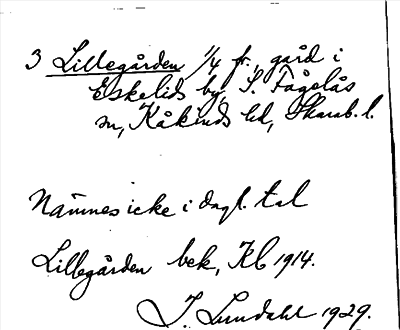 3 Lillegården 1/4 fr., gård i
Eskelids by, S. Fågelås
sn, Kåkinds hd, Skarab. l.
Nämnes icke i dagl. tal
Lillegården bek, Kb 1914.
J. Lundahl 1929.